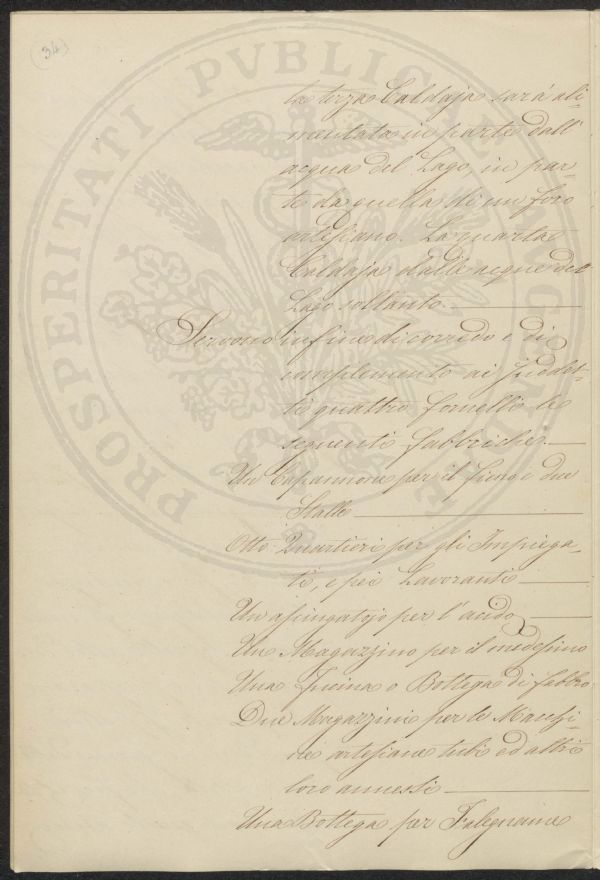 (34)
PROSPERITATI PVBLICAE AVGENDAE
la terza Caldaja sarà ali-
mentata in parte dall'
acqua del Lago, in par-
te da quella di un foro
artesiano. La quarta
Caldaja dalle acque del
Lago soltanto.
Servono infine di corredo e di
complemento ai suddet-
ti quattro fornelli le
seguenti fabbriche.
Un Capannone per il fieno e due
Stalle
Otto Quartieri per gli Impiega-
ti, e pei Lavoranti
Un asciugatojo per l'acido
Un Magazzino per il medesimo
Una Fucina o Bottega di fabbro
Due Magazzini per le Macchi-
ne artesiane tubi ed altri
loro annessi
Una Bottega per Falegname